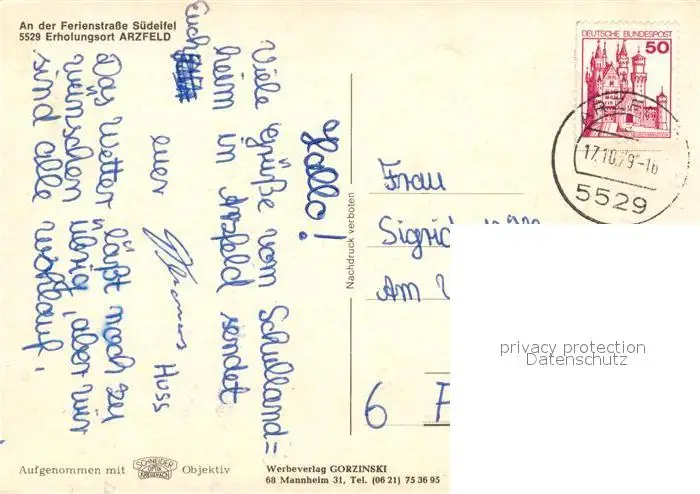 An der Ferienstraße Südeifel
5529 Erholungsort ARZFELD
Hallo!
Viele Grüße vom Schulland=
heim in Arzfeld sendet
euch
euer Thomas Huss
Das Wetter läßt noch zu
wünschen übrig, aber wir
sind alle wohlauf.
Nachdruck verboten
DEUTSCHE BUNDESPOST
50
17.10.79-16
5529
Frau
Sigrid
Am
6 F
privacy protection
Datenschutz
Aufgenommen mit SCHNEIDER OPTIK KREUZNACH Objektiv
Werbeverlag GORZINSKI
68 Mannheim 31, Tel. (06 21) 75 36 95